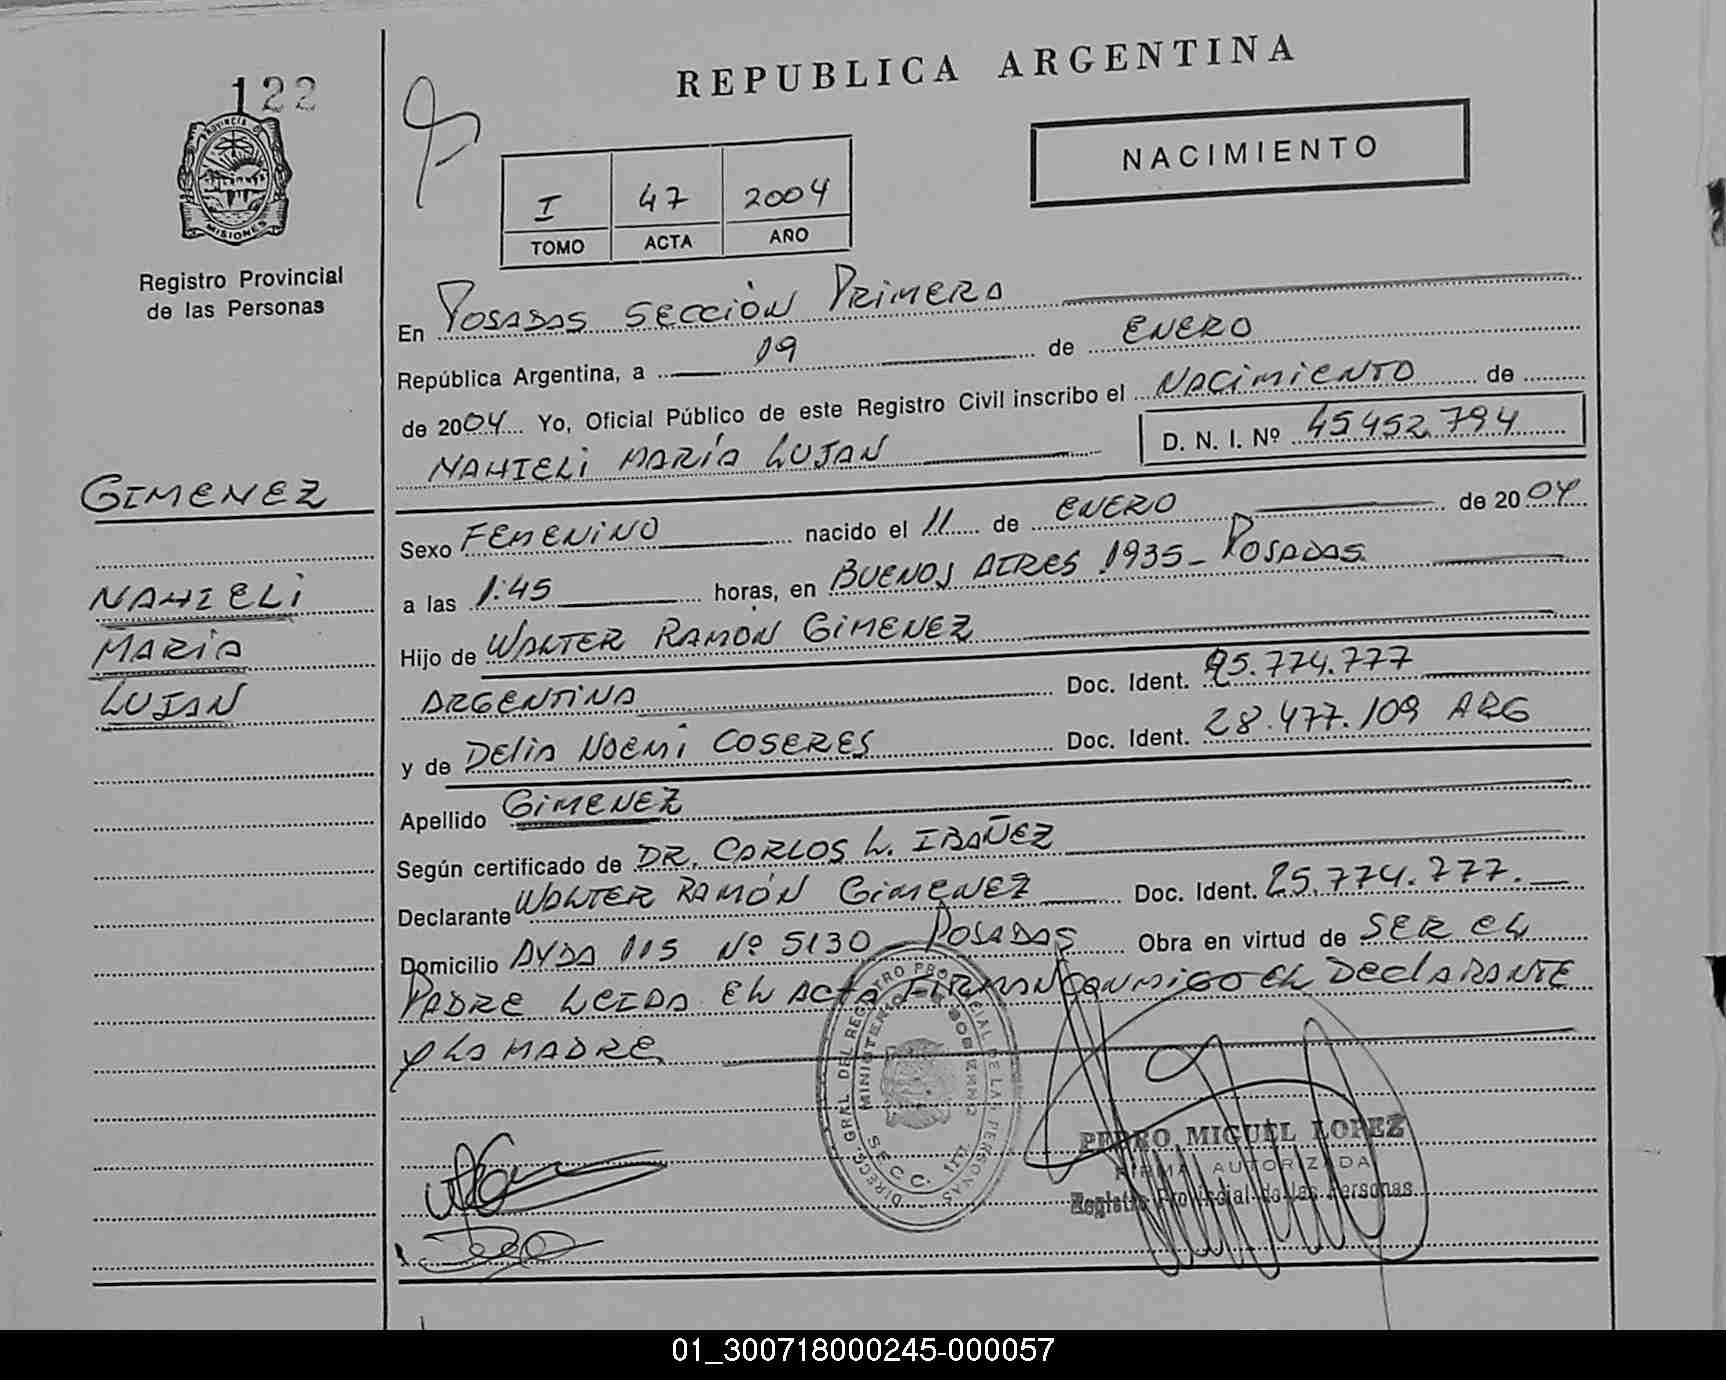 122
PROVINCIA DE
MISIONES
Registro Provincial
de las Personas
REPUBLICA ARGENTINA
NACIMIENTO
I 47 2004
TOMO ACTA AÑO
En POSADAS SECCIÓN PRIMERA
República Argentina, a 19 de ENERO
de 2004 Yo, Oficial Público de este Registro Civil inscribo el NACIMIENTO de
NAHIELI MARÍA LUJAN D. N. I. Nº 45452.794
GIMENEZ
NAHIELI
MARIA
LUJAN
Sexo FEMENINO nacido el 11 de ENERO de 2004
a las 1:45 horas, en BUENOS AIRES 1935- POSADAS
Hijo de WALTER RAMÓN GIMENEZ
ARGENTINA Doc. Ident. 25.774.777
y de DELIA NOEMÍ COSERES Doc. Ident. 28.477.109 ARG
Apellido GIMENEZ
Según certificado de DR. CARLOS L. IBAÑEZ
Declarante WALTER RAMÓN GIMENEZ Doc. Ident. 25.774.777.
Domicilio AVDA 115 Nº 5130 POSADAS Obra en virtud de SER EL
PADRE LEIDA EL ACTA FIRMAN CONMIGO EL DECLARANTE
Y LA MADRE
DIRECC. GRAL. DEL REGISTRO PROVINCIAL DE LAS PERSONAS
MINISTERIO DE GOBIERNO
SECC. 1ra.
PEDRO MIGUEL LOPEZ
FIRMA AUTORIZADA
Registro Provincial de las Personas
01_300718000245-000057